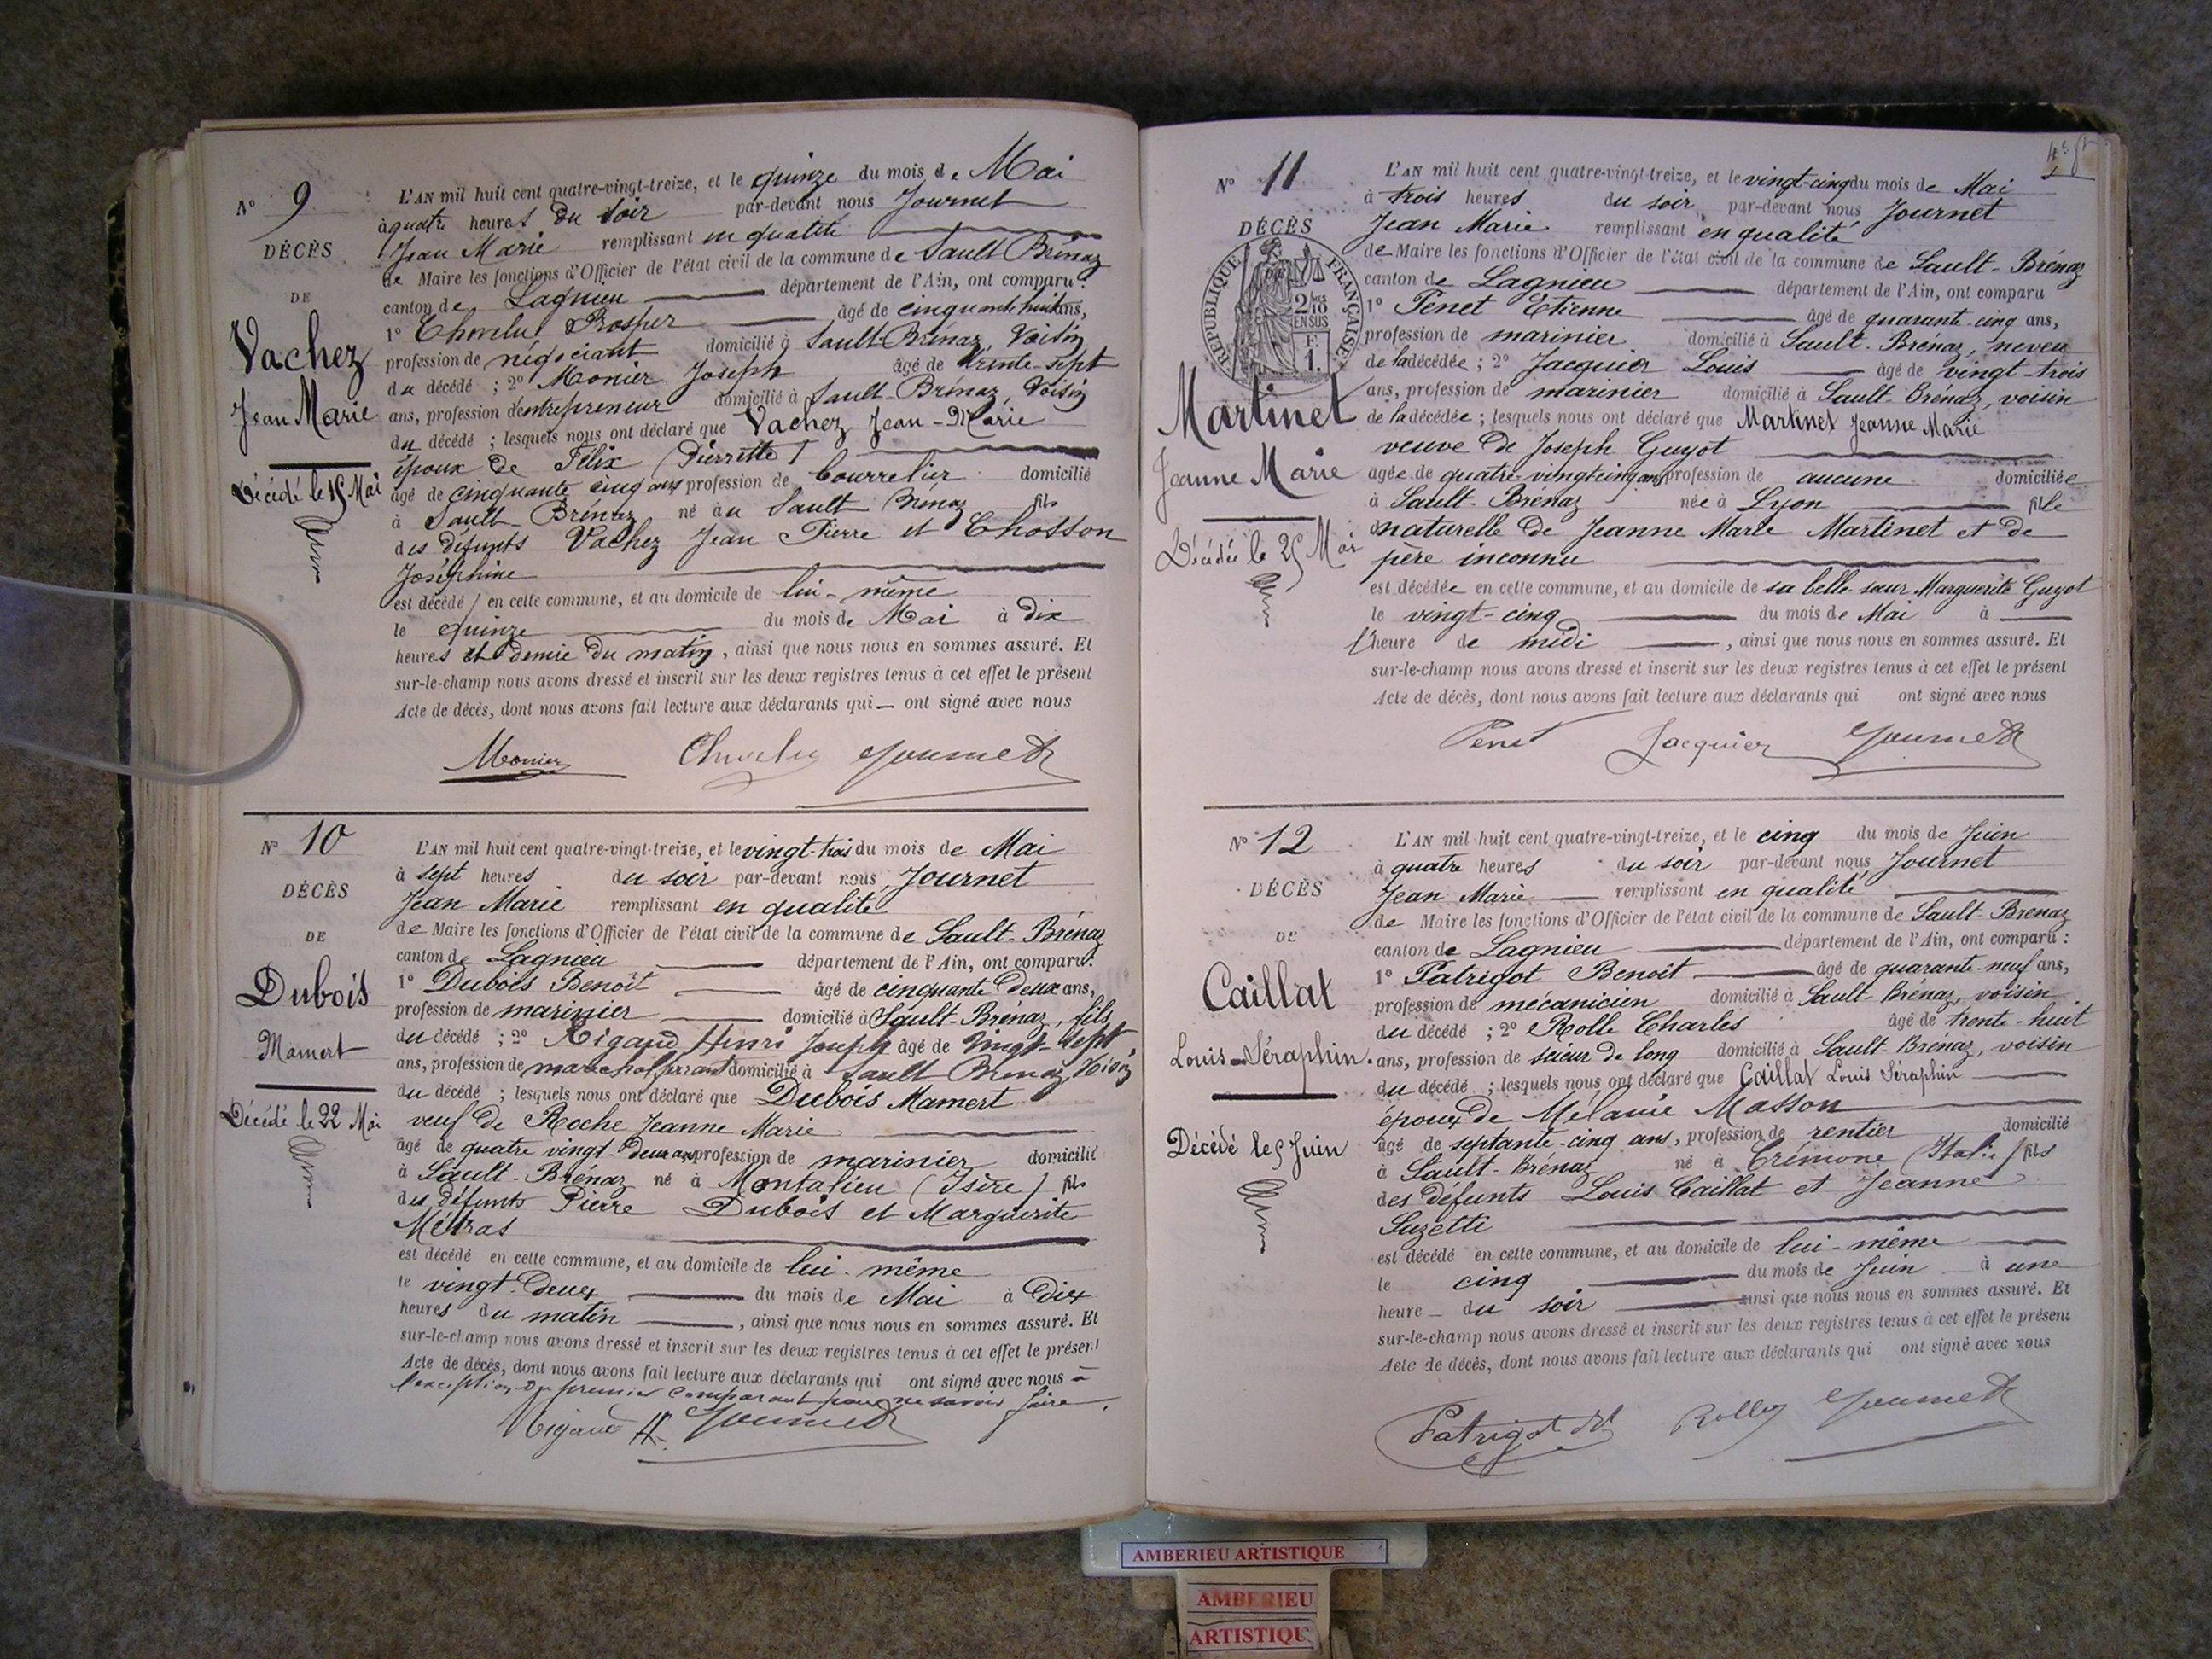 N° 9
DÉCÈS
DE
Vachez
Jean Marie
Décédé le 15 Mai
L'AN mil huit cent quatre-vingt-treize, et le quinze du mois de Mai
à quatre heures du soir par-devant nous Journet
Jean Marie remplissant en qualité
de Maire les fonctions d'Officier de l'état civil de la commune de Sault Brénaz
canton de Lagnieu département de l'Ain, ont comparu :
1° Prosper âgé de cinquante huit ans,
profession de négociant domicilié à Sault-Brénaz, Voisin
du décédé ; 2° Monier Joseph âgé de trente-sept
ans, profession d'entrepreneur domicilié à Sault-Brénaz, Voisin
du décédé ; lesquels nous ont déclaré que Vachez Jean-Marie
époux de Félix Pierrette
âgé de cinquante cinq ans profession de bourrelier domicilié
à Sault Brénaz né au Sault Brénaz fils
des défunts Vachez Jean Pierre et Chosson
Joséphine
est décédé en cette commune, et au domicile de lui-même
le quinze du mois de Mai à dix
heures et demie du matin, ainsi que nous nous en sommes assuré. Et
sur-le-champ nous avons dressé et inscrit sur les deux registres tenus à cet effet le présent
Acte de décès, dont nous avons fait lecture aux déclarants qui — ont signé avec nous
Monier Journet
N° 10
DÉCÈS
DE
Dubois
Mamert
Décédé le 22 Mai
L'AN mil huit cent quatre-vingt-treize, et le vingt-trois du mois de Mai
à sept heures du soir par-devant nous, Journet
Jean Marie remplissant en qualité
de Maire les fonctions d'Officier de l'état civil de la commune de Sault-Brénaz
canton de Lagnieu département de l'Ain, ont comparu :
1° Dubois Benoît âgé de cinquante deux ans,
profession de marinier domicilié à Sault-Brénaz, fils
du décédé ; 2° Rigaud Henri Joseph âgé de vingt-sept
ans, profession de maréchal ferrant domicilié à Sault Brénaz, Voisin
du décédé ; lesquels nous ont déclaré que Dubois Mamert
veuf de Roche Jeanne Marie
âgé de quatre vingt-deux ans profession de marinier domicilié
à Sault-Brénaz né à Montalieu (Isère) fils
des défunts Pierre Dubois et Marguerite
Métras
est décédé en cette commune, et au domicile de lui-même
le vingt-deux du mois de Mai à dix
heures du matin, ainsi que nous nous en sommes assuré. Et
sur-le-champ nous avons dressé et inscrit sur les deux registres tenus à cet effet le présent
Acte de décès, dont nous avons fait lecture aux déclarants qui ont signé avec nous à
l'exception du premier comparant pour ne savoir faire.
Rigaud H. Journet
N° 11
DÉCÈS
RÉPUBLIQUE FRANÇAISE
2/10
EN SUS
F.
1.
Martinet
Jeanne Marie
Décédée le 25 Mai
L'AN mil huit cent quatre-vingt-treize, et le vingt-cinq du mois de Mai
à trois heures du soir, par-devant nous Journet
Jean Marie remplissant en qualité
de Maire les fonctions d'Officier de l'état civil de la commune de Sault-Brénaz
canton de Lagnieu département de l'Ain, ont comparu
1° Penet Etienne âgé de quarante-cinq ans,
profession de marinier domicilié à Sault-Brénaz, neveu
de la décédée ; 2° Jacquier Louis âgé de vingt-trois
ans, profession de marinier domicilié à Sault-Brénaz, voisin
de la décédée ; lesquels nous ont déclaré que Martinet Jeanne Marie
veuve de Joseph Guyot
agée de quatre-vingt-cinq ans profession de aucune domiciliée
à Sault-Brénaz née à Lyon fille
naturelle de Jeanne Marie Martinet et de
père inconnu
est décédée en cette commune, et au domicile de sa belle-sœur Marguerite Guyot
le vingt-cinq du mois de Mai à
l'heure de midi, ainsi que nous nous en sommes assuré. Et
sur-le-champ nous avons dressé et inscrit sur les deux registres tenus à cet effet le présent
Acte de décès, dont nous avons fait lecture aux déclarants qui ont signé avec nous
Penet Jacquier Journet
N° 12
DÉCÈS
DE
Caillat
Louis-Séraphin.
Décédé le 5 Juin
L'AN mil huit cent quatre-vingt-treize, et le cinq du mois de Juin
à quatre heures du soir par-devant nous Journet
Jean Marie — remplissant en qualité
de Maire les fonctions d'Officier de l'état civil de la commune de Sault-Brénaz
canton de Lagnieu département de l'Ain, ont comparu :
1° Patrigot Benoît âgé de quarante-neuf ans,
profession de mécanicien domicilié à Sault-Brénaz, voisin
du décédé ; 2° Rolle Charles âgé de trente-huit
ans, profession de scieur de long domicilié à Sault-Brénaz, voisin
du décédé ; lesquels nous ont déclaré que Caillat Louis Séraphin
époux de Mélanie Masson
âgé de septante-cinq ans, profession de rentier domicilié
à Sault-Brénaz né à Crémone (Italie) fils
des défunts Louis Caillat et Jeanne
Suzetti
est décédé en cette commune, et au domicile de lui-même
le cinq du mois de Juin à une
heure — du soir ainsi que nous nous en sommes assuré. Et
sur-le-champ nous avons dressé et inscrit sur les deux registres tenus à cet effet le présent
Acte de décès, dont nous avons fait lecture aux déclarants qui ont signé avec nous
Patrigot Journet
AMBERIEU ARTISTIQUE
AMBERIEU
ARTISTIQU